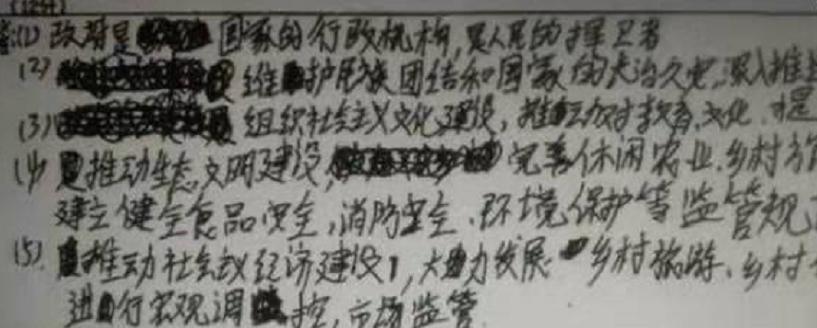 (12分)
答:(1) 政府是国家的行政机构,是人民的捍卫者
(2) 维护民族团结和国家的长治久安,深入推
(3) 组织社会主义文化建设,推动对教育、文化、
(4) 推动生态文明建设,完善休闲农业、乡村
建立健全食品安全,消防安全、环境保护等监管规
(5). 推动社会主义经济建设,大力发展乡村旅游、乡村
进行宏观调控,市场监管